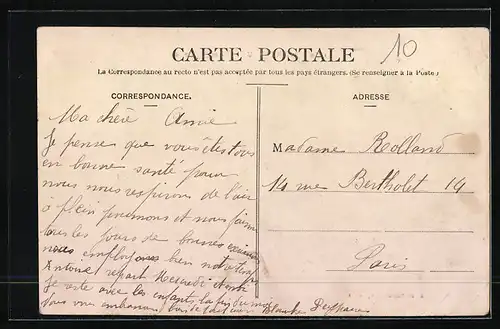 10
CARTE POSTALE
La Correspondance au recto n'est pas acceptée par tous les pays étrangers. (Se renseigner à la Poste)
CORRESPONDANCE.
ADRESSE
Ma chère Amie
Je pense que vous êtes tous
en bonne santé pour
nous nous respirons de l'air
à plein poumons et nous faisons
tous les jours de bonnes excursions
nous employons bien notre temps
Antoine repart Mercredi
Je reste avec les enfants la fin du mois
vous embrassons Blanche
Madame Rolland
14 rue Bertholet 14
Paris